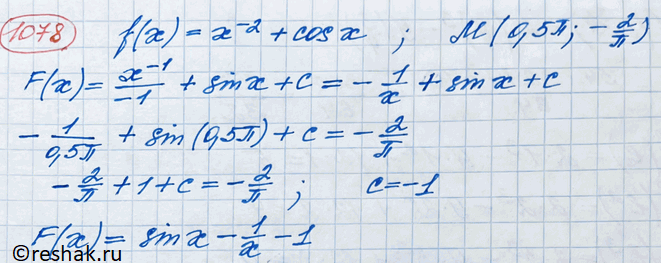 1078 f(x) = x⁻² + cos x ; M(0,5π; -2/π)
F(x) = x⁻¹/-1 + sin x + C = -1/x + sin x + C
-1/0,5π + sin(0,5π) + C = -2/π
-2/π + 1 + C = -2/π ; C = -1
F(x) = sin x - 1/x - 1
©reshak.ru